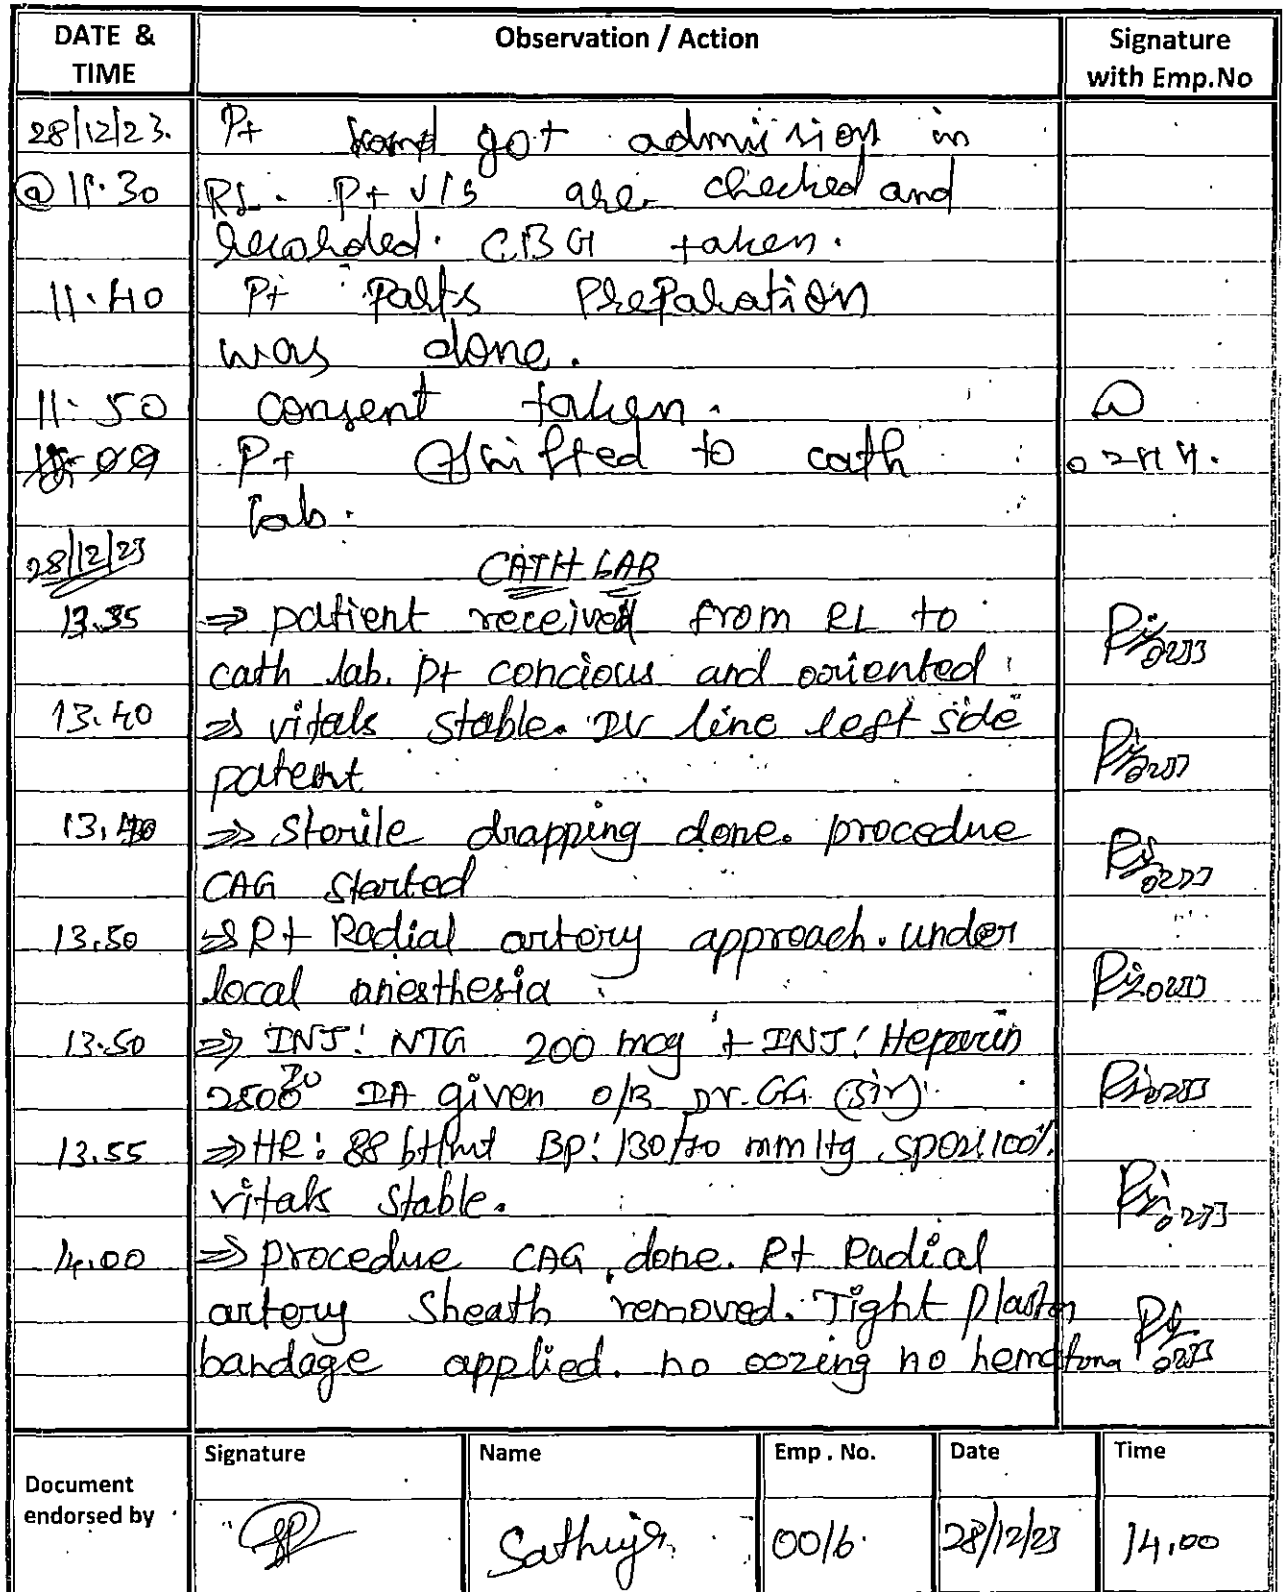 DATE & TIME Observation / Action Signature with Emp.No
28/12/23. Pt got admission in
@ 11.30 RL. Pt V/S are checked and
recorded. CBG taken.
11.40 Pt Parts Preparation
was done.
11.50 consent taken.
Pt shifted to cath 0244.
lab.
28/12/23 CATH LAB
13.35 ⇒ patient received from RL to 0233
cath lab. pt concious and oriented
13.40 ⇒ vitals stable. IV line left side
patent
13.40 ⇒ Sterile drapping done. procedue
CAG Started
13.50 ⇒ Rt Radial artery approach. under
local anesthesia
13.50 ⇒ INJ: NTG 200 mcg + INJ: Heparin
2500 IA given O/B Dr. GG (Sir).
13.55 ⇒ HR: 88 bt/mt BP: 130/70 mmHg SPO2: 100%.
vitals stable.
14.00 ⇒ procedue CAG done. Rt Radial
artery Sheath removed. Tight Plaster
bandage applied. no oozing no hematoma
Document endorsed by Signature Name Emp. No. Date Time
0016. 28/12/23 14.00